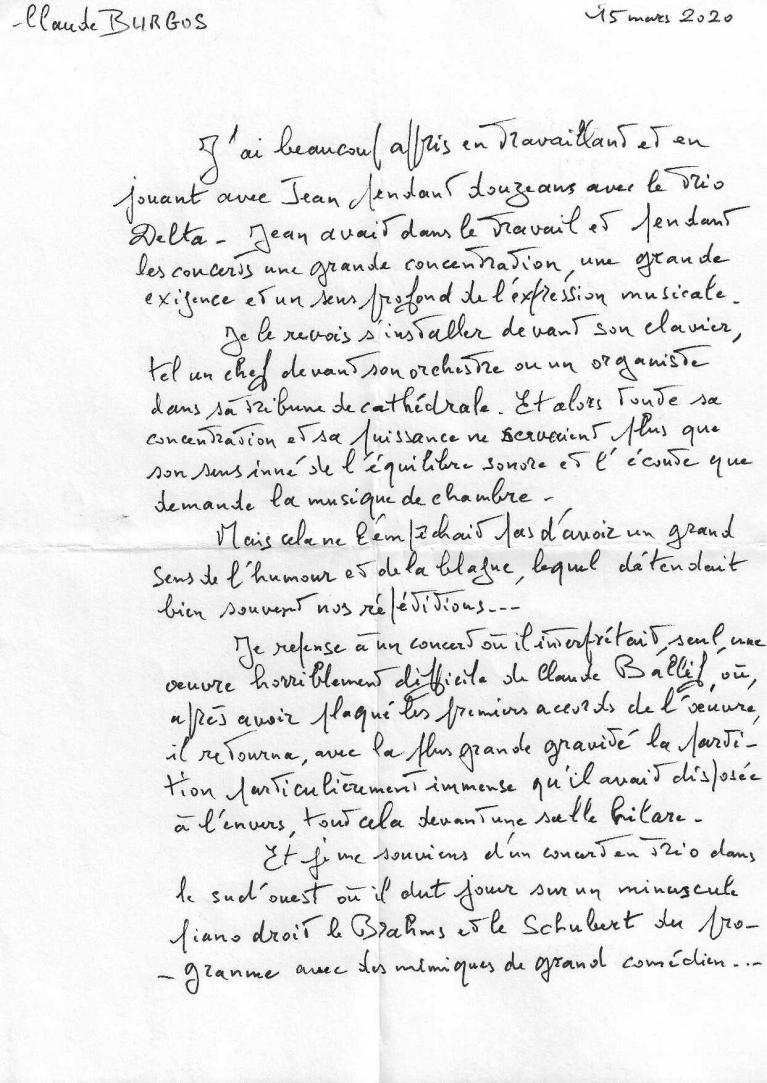 Claude BURGOS
15 mars 2020
J'ai beaucoup appris en travaillant et en
jouant avec Jean pendant douze ans avec le trio
Delta - Jean avait dans le travail et pendant
les concerts une grande concentration, une grande
exigence et un sens profond de l'expression musicale.
Je le revois s'installer devant son clavier,
tel un chef devant son orchestre ou un organiste
dans sa tribune de cathédrale. Et alors toute sa
concentration et sa puissance ne servaient plus que
son sens inné de l'équilibre sonore et l'écoute que
demande la musique de chambre -
Mais cela ne l'empêchait pas d'avoir un grand
sens de l'humour et de la blague, lequel détendait
bien souvent nos répétitions---
Je repense à un concert où il interprétait, seul, une
oeuvre horriblement difficile de Claude Ballif, où,
après avoir plaqué les premiers accords de l'oeuvre,
il retourna, avec la plus grande gravité la parti-
tion particulièrement immense qu'il avait disposée
à l'envers, tout cela devant une salle hilare -
Et je me souviens d'un concert en trio dans
le sud'ouest où il dut jouer sur un minuscule
piano droit le Brahms et le Schubert du pro-
- gramme avec des mimiques de grand comédien ---